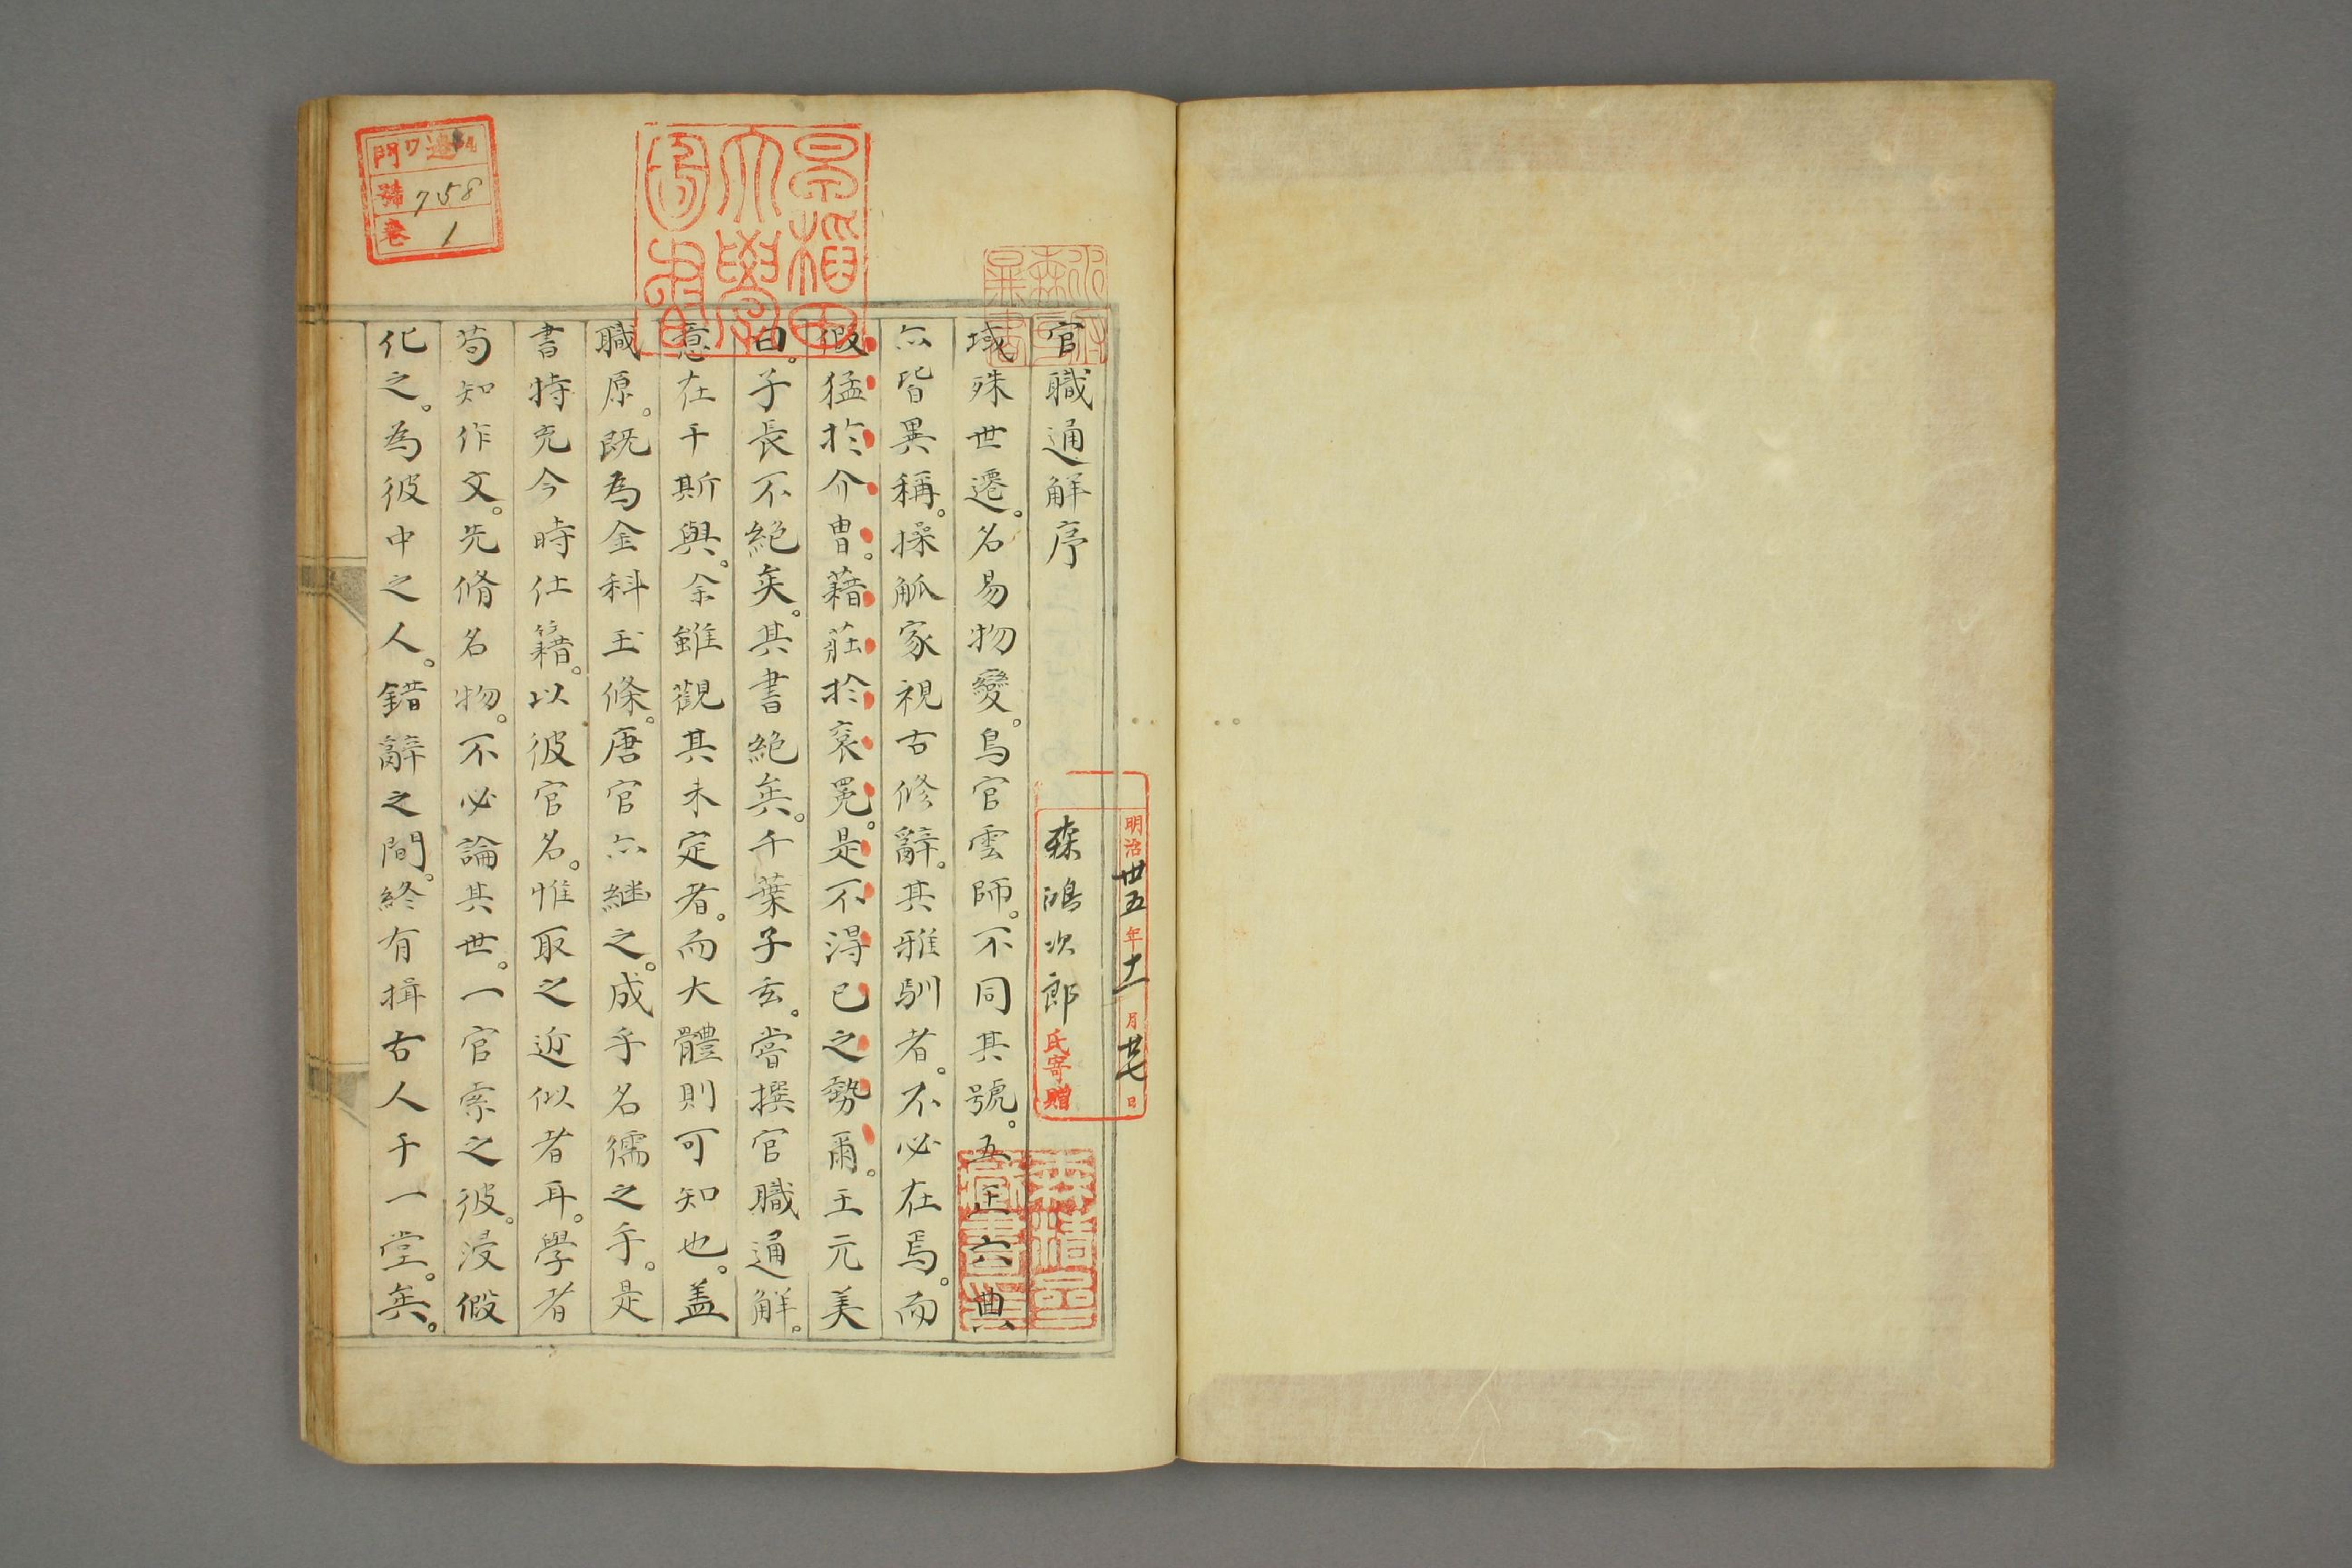 官職通解序
域殊世遷。名易物變。鳥官雲師。不同其號。五王六典
亦皆異稱。操觚家視古修辭。其雅馴者。不必在焉。而
假猛於介冑。藉莊於袞冕。是不得已之勢爾。王元美
曰。子長不絕矣。其書絕矣。千葉子玄。嘗撰官職通解。
意在于斯與。余雖觀其未定者。而大體則可知也。盖
職原。既為金科玉條。唐官亦継之。成乎名儒之手。是
書特充今時仕籍。以彼官名。惟取之近似者耳。學者
苟知作文。先脩名物。不必論其世。一官索之彼。浸假
化之。為彼中之人。錯辭之間。終有揖古人于一堂。矣。
明治卅五年十一月廿七日
森鴻次郎氏寄贈
早稲田大學圖書
門
號 758
卷 1